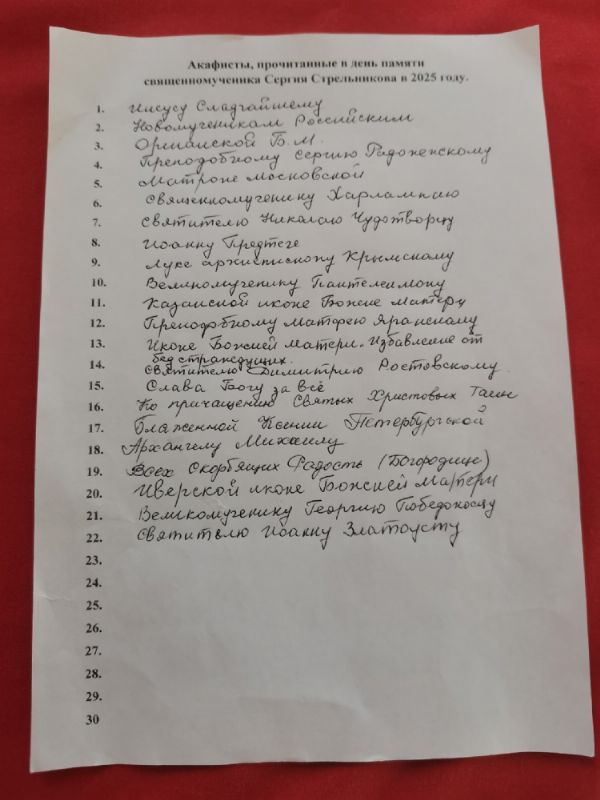 Акафисты, прочитанные в день памяти
священномученика Сергия Стрельникова в 2025 году.
1. Иисусу Сладчайшему
2. Новомученикам Российским
3. Оршанской Б.М.
4. Преподобному Сергию Радонежскому
5. Матроне Московской
6. Священномученику Харлампию
7. Святителю Николаю Чудотворцу
8. Иоанну Предтече
9. Луке архиепископу Крымскому
10. Великомученику Пантелеимону
11. Казанской иконе Божие Матери
12. Преподобному Матфею Яранскому
13. Иконе Божией Матери. Избавление от
бед страждущих.
14. Святителю Димитрию Ростовскому.
15. Слава Богу за всё
16. Ко причащению Святых Христовых Таин
17. Блаженной Ксении Петербургской
18. Архангелу Михаилу
19. Всех Скорбящих Радость (Богородице)
20. Иверской иконе Божией Матери
21. Великомученику Георгию Победоносцу
22. Святителю Иоанну Златоусту
23.
24.
25.
26.
27.
28.
29.
30